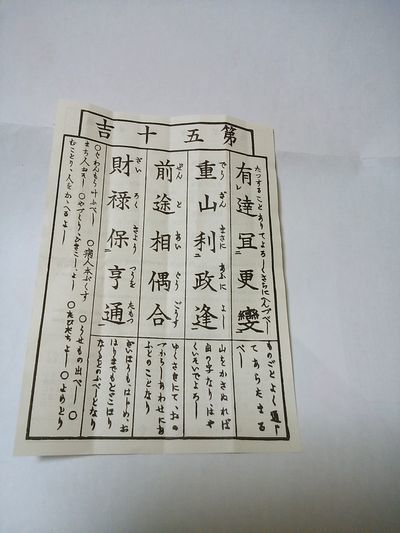 第五十吉
たつすることありてよろしくさらにへんずべし
有達冝更變
ものごとよく
てあらたまる
重山利政逢
山をかさぬれば
出の字なり、はや
くいそいでよろし
前途相偶合
ゆくさきにて、おの
づからしあわせにあ
ふとのことなり
財禄保亨通
ざいほうも、はじめ、お
はりまでもとどこほり
なくととのふべしとなり
○病人本ぶくす ○うせもの出べし ○
まち人 ○やづくりひきこし、よし ○たびだちよし ○よめとり
むことり、人をかゝへるよし